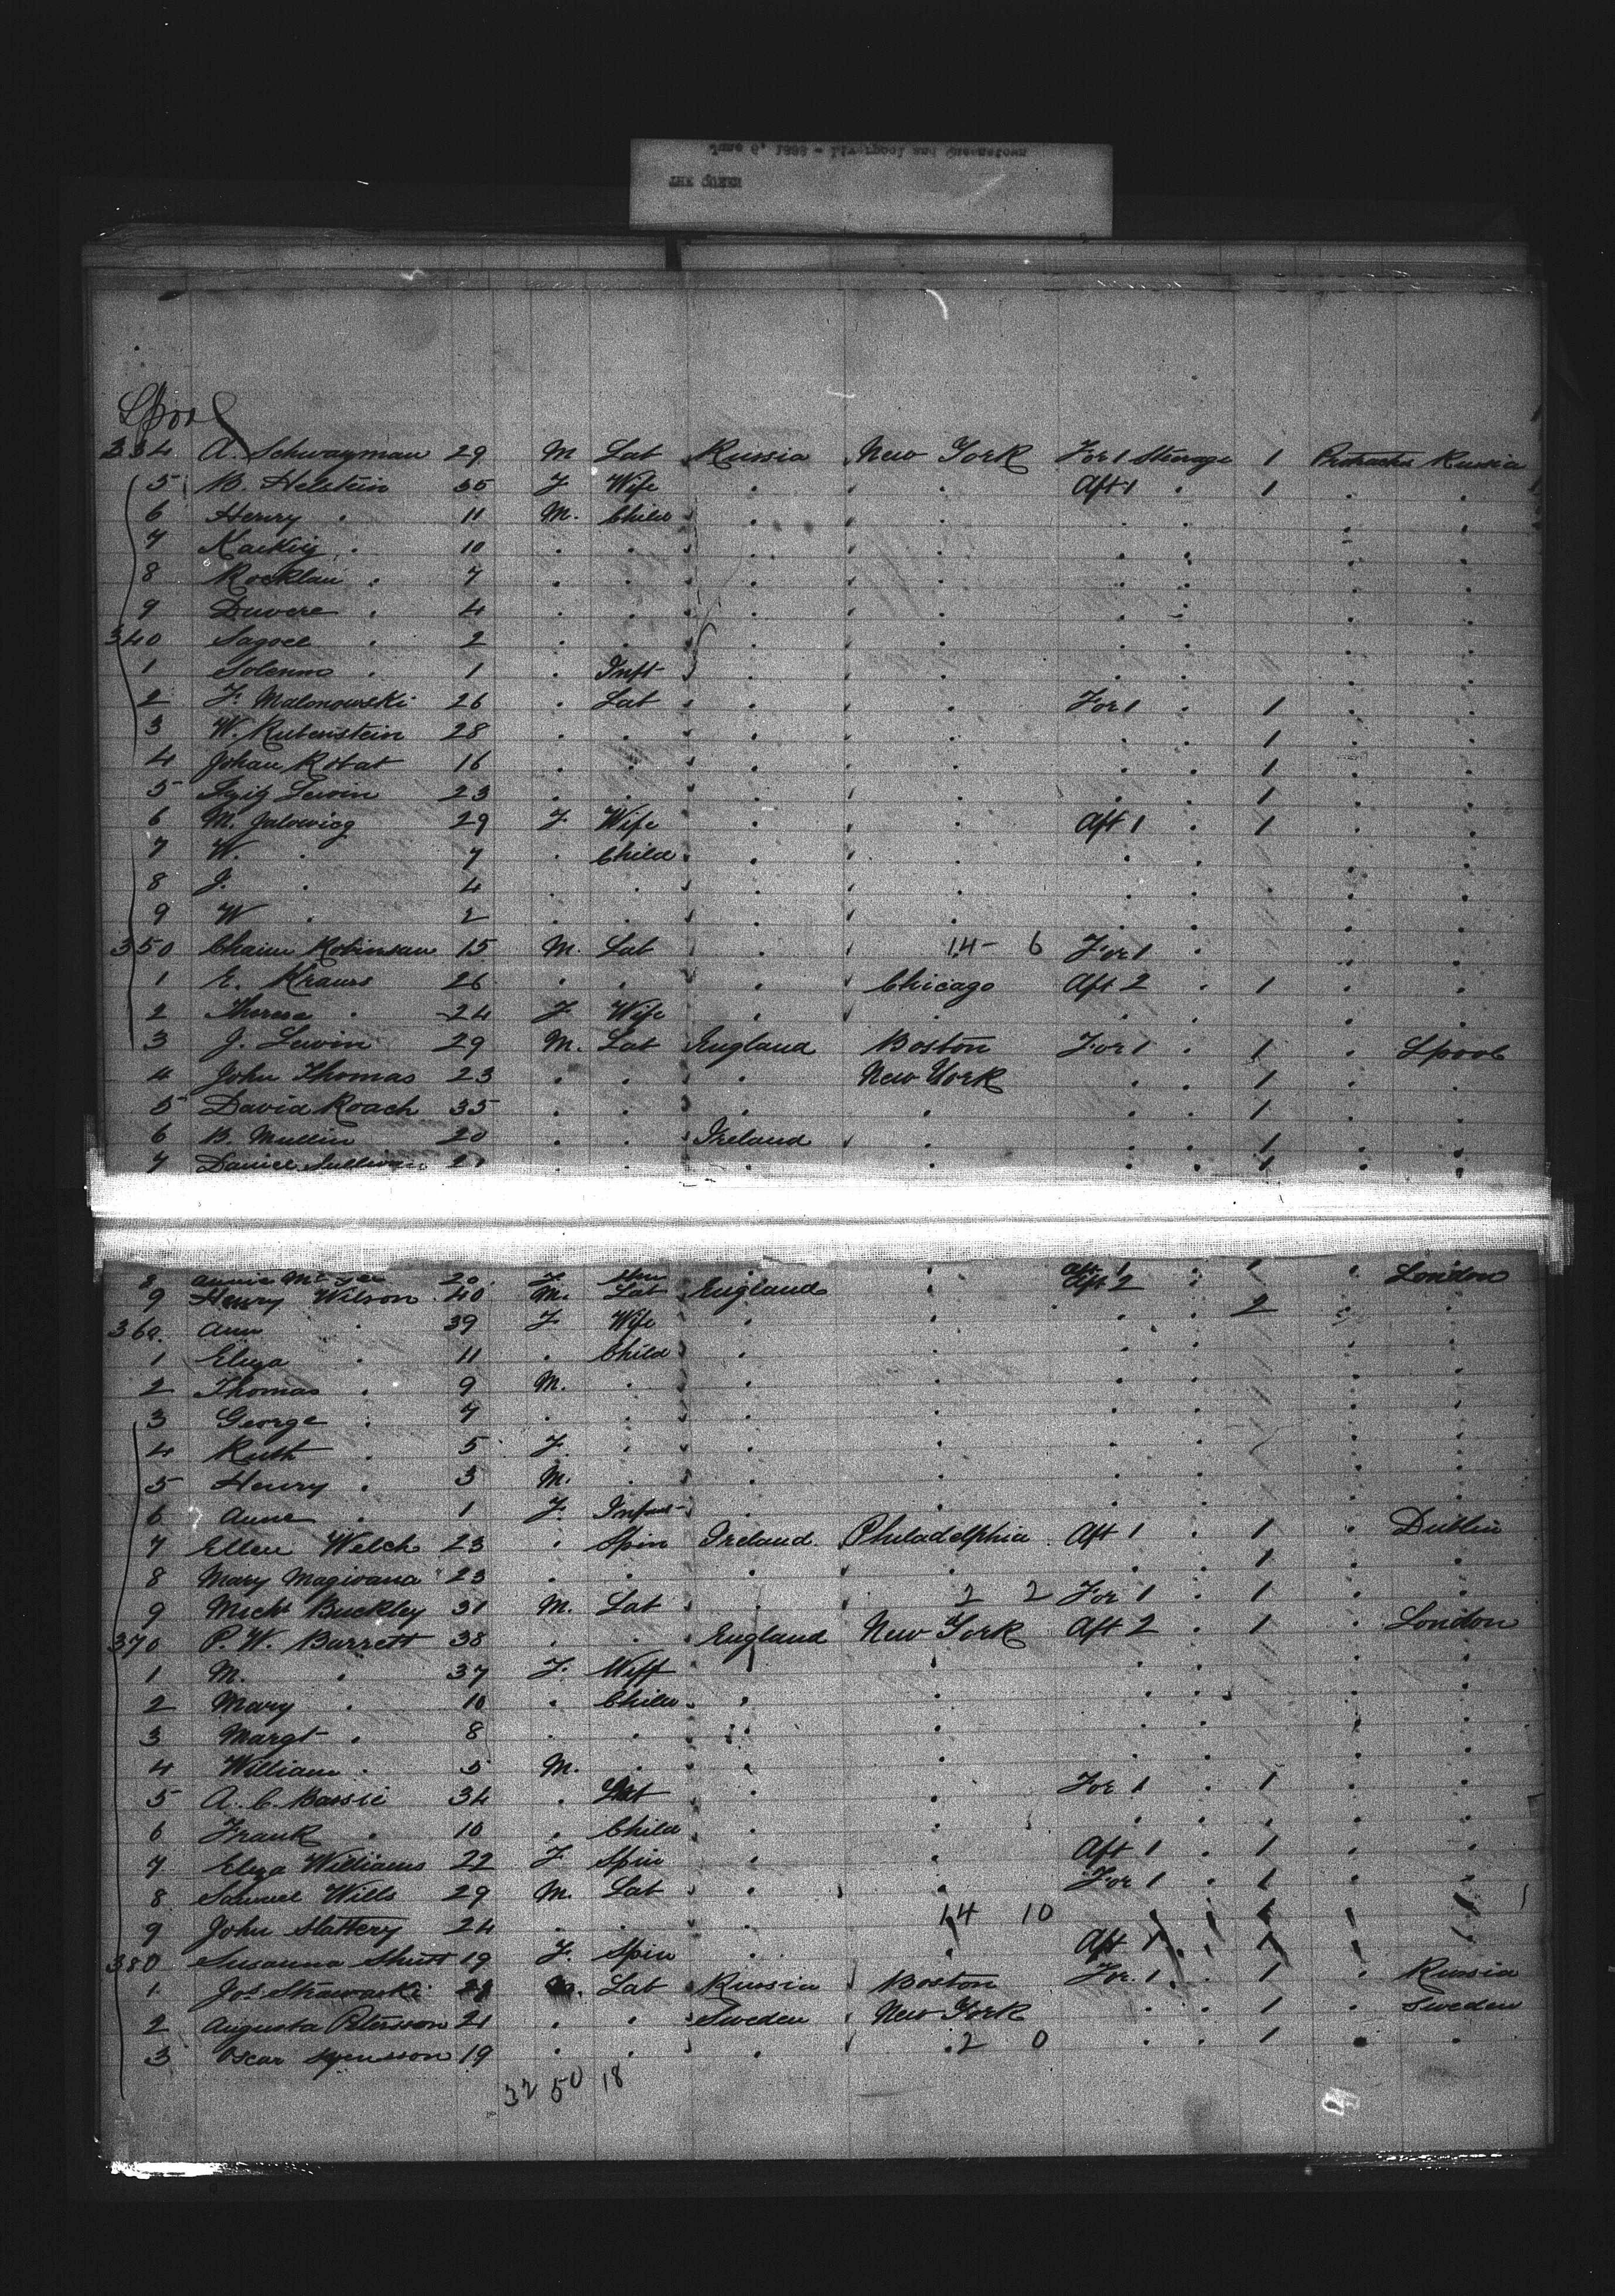 June 6, 1888 - Liverpool and Queenstown
THE QUEEN
Lpool
334 A. Schwayman 29 M Lab Russia New York For 1 Steerage 1 Protracted Russia
5 B. Helstein 35 F Wife . . Aft 1 . 1 . .
6 Henry . 11 M. Child . . . . . .
7 . 10 . . . . . . . .
8 Rocklan . 7 . . . . . . . .
9 Duvere . 4 . . . . . . . .
340 Sagoel . 2 . . . . . . . .
1 . 1 . Inft . . . . . .
2 F. Malonowski 26 . Lab . . For 1 . 1 . .
3 W. Rubenstein 28 . . . . . . 1 . .
4 Johan Robat 16 . . . . . . 1 . .
5 Lewin 23 . . . . . . 1 . .
6 M. Jalowicz 29 F Wife . . Aft 1 . 1 . .
7 W. . 7 . Child . . . . . .
8 J. . 4 . . . . . . . .
9 W . 2 . . . . . . . .
350 Chaim Robinson 15 M. Lab . 14 - 6 For 1 . . .
1 E. Kraus 26 . . . Chicago Aft 2 . 1 . .
2 Theresa . 24 F Wife . . . . . .
3 J. Lewin 29 M. Lab England Boston For 1 . 1 . Lpool
4 John Thomas 23 . . . New York . . 1 . .
5 David Roach 35 . . . . . . 1 . .
6 B. Mullin 20 . . Ireland . . . 1 . .
7 Daniel Sullivan . . . . . . 1 . .
8 Annie 20 F . Aft 1 . 1 .
9 Henry Wilson 40 M. Lab England . Aft 2 . 2 . London
360 Ann . 39 F Wife . . . . . .
1 Eliza . 11 . Child . . . . . .
2 Thomas . 9 M. . . . . . . .
3 George . 7 . . . . . . . .
4 Ruth . 5 F. . . . . . . .
5 Henry . 3 M. . . . . . . .
6 Anne . 1 F. Infant . . . . . .
7 Ellen Welch 23 . Spin Ireland Philadelphia Aft 1 . 1 . Dublin
8 Mary Magivana 23 . . . . . . 1 . .
9 Michl Buckley 31 M. Lab . 2 2 For 1 . 1 . .
370 P. W. Barrett 38 . . England New York Aft 2 . 1 . London
1 M. . 37 F. Wiff . . . . . .
2 Mary . 10 . Child . . . . . .
3 Margt . 8 . . . . . . . .
4 William . 5 M. . . . . . . .
5 A. C. Bassie 34 . Lab . . For 1 . 1 . .
6 Frank . 10 . Child . . . . . .
7 Eliza Williams 22 F Spin . . Aft 1 . 1 . .
8 Samuel Wills 29 M. Lab . . For 1 . 1 . .
9 John Slattery 24 . . . 14 10 . . 1 . .
380 Susanna Shutt 19 F. Spin . . Aft 1 . 1 . .
1 Jos. Strawaski M. Lab Russia Boston For. 1 . 1 . Russia
2 Augusta Petersson 21 . . Sweden New York . . 1 . Sweden
3 Oscar 19 . . . 2 0 . . 1 . .
32 50 18